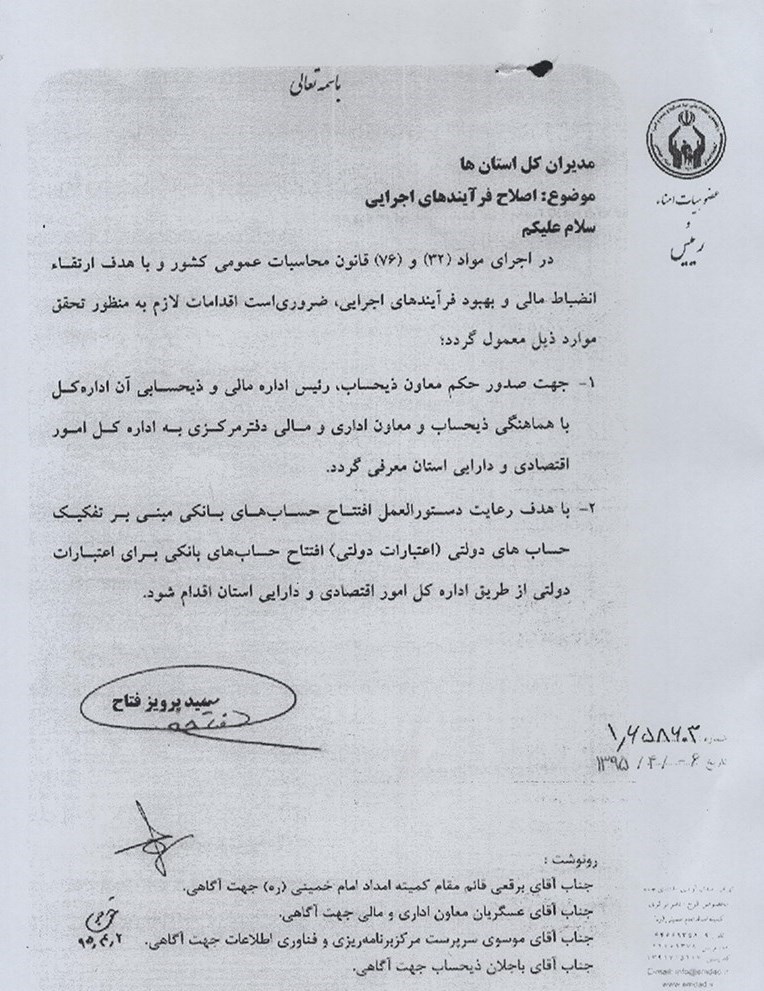 باسمه تعالی
مدیران کل استان ها
موضوع: اصلاح فرآیندهای اجرایی
سلام علیکم
در اجرای مواد (۳۲) و (۷۶) قانون محاسبات عمومی کشور و با هدف ارتقاء
انضباط مالی و بهبود فرآیندهای اجرایی، ضروری‌است اقدامات لازم به منظور تحقق
موارد ذیل معمول گردد؛
۱- جهت صدور حکم معاون ذیحساب، رئیس اداره مالی و ذیحسابی آن اداره‌کل
با هماهنگی ذیحساب و معاون اداری و مالی دفترمرکزی به اداره کل امور
اقتصادی و دارایی استان معرفی گردد.
۲- با هدف رعایت دستورالعمل افتتاح حساب‌های بانکی مبنی بر تفکیک
حساب های دولتی (اعتبارات دولتی) افتتاح حساب‌های بانکی برای اعتبارات
دولتی از طریق اداره کل امور اقتصادی و دارایی استان اقدام شود.
عضو هیات امناء
و
رئیس
سید پرویز فتاح
شماره
تاریخ
رونوشت :
جناب آقای برقعی قائم مقام کمیته امداد امام خمینی (ره) جهت آگاهی.
جناب آقای عسگریان معاون اداری و مالی جهت آگاهی.
جناب آقای موسوی سرپرست مرکزبرنامه‌ریزی و فناوری اطلاعات جهت آگاهی.
جناب آقای باجلان ذیحساب جهت آگاهی.
E-mail: info@emdad.ir
www.emdad.ir